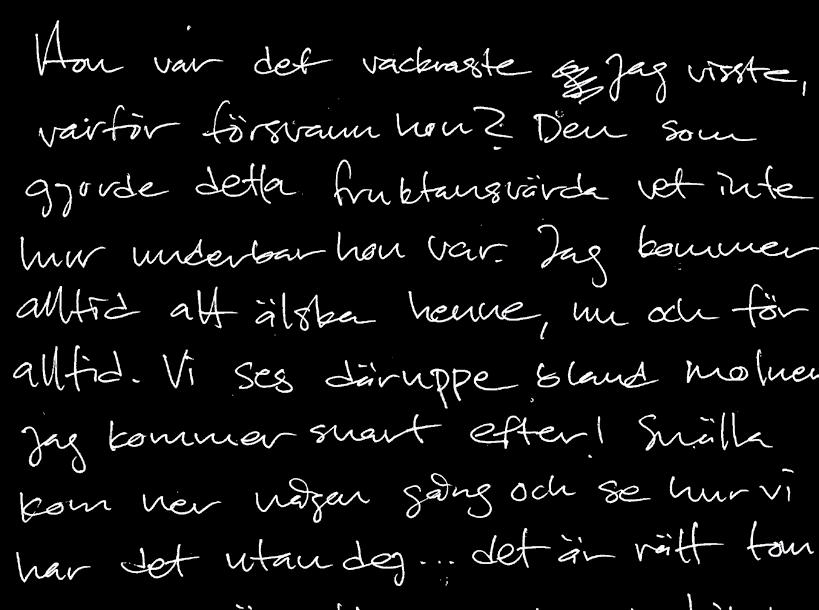 Hon var det vackraste jag visste,
varför försvann hon? Den som
gjorde detta fruktansvärda vet inte
hur underbar hon var. Jag kommer
alltid att älska henne, nu och för
alltid. Vi ses däruppe bland molnen
Jag kommer snart efter! Snälla
kom ner någon gång och se hur vi
har det utan dej... det är rätt tom